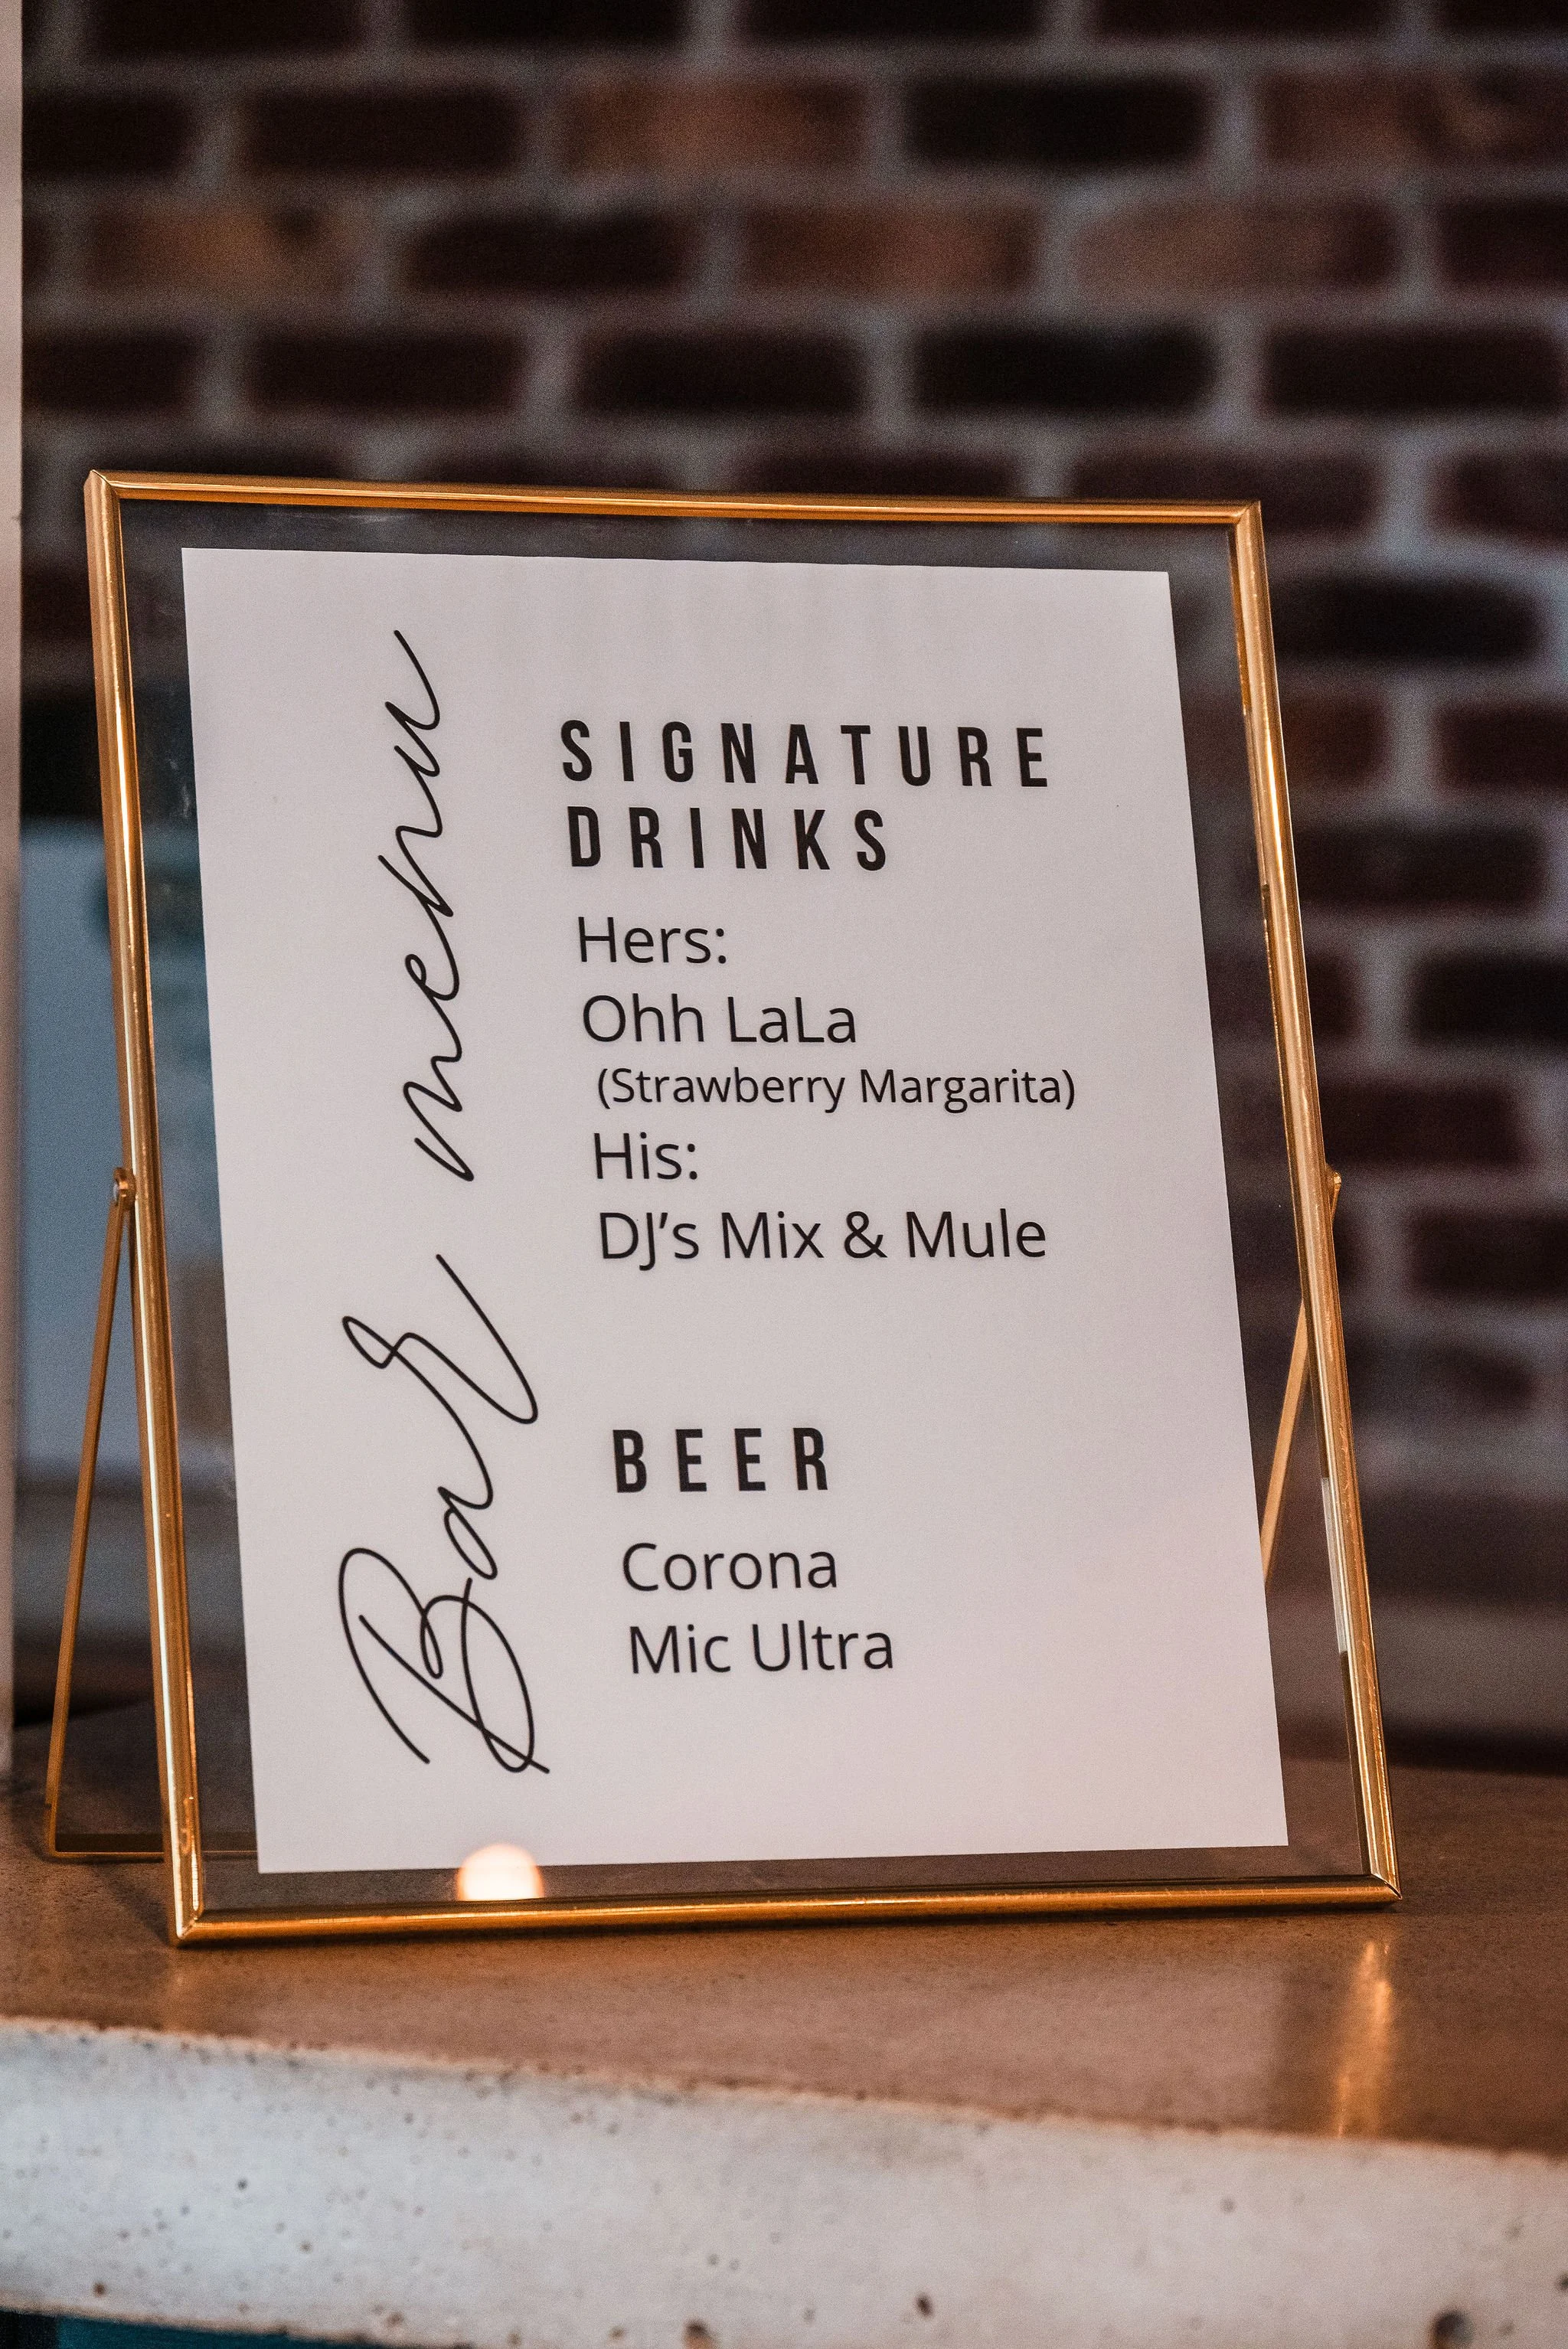 Bar menu
SIGNATURE
DRINKS
Hers:
Ohh LaLa
(Strawberry Margarita)
His:
DJ’s Mix & Mule
BEER
Corona
Mic Ultra